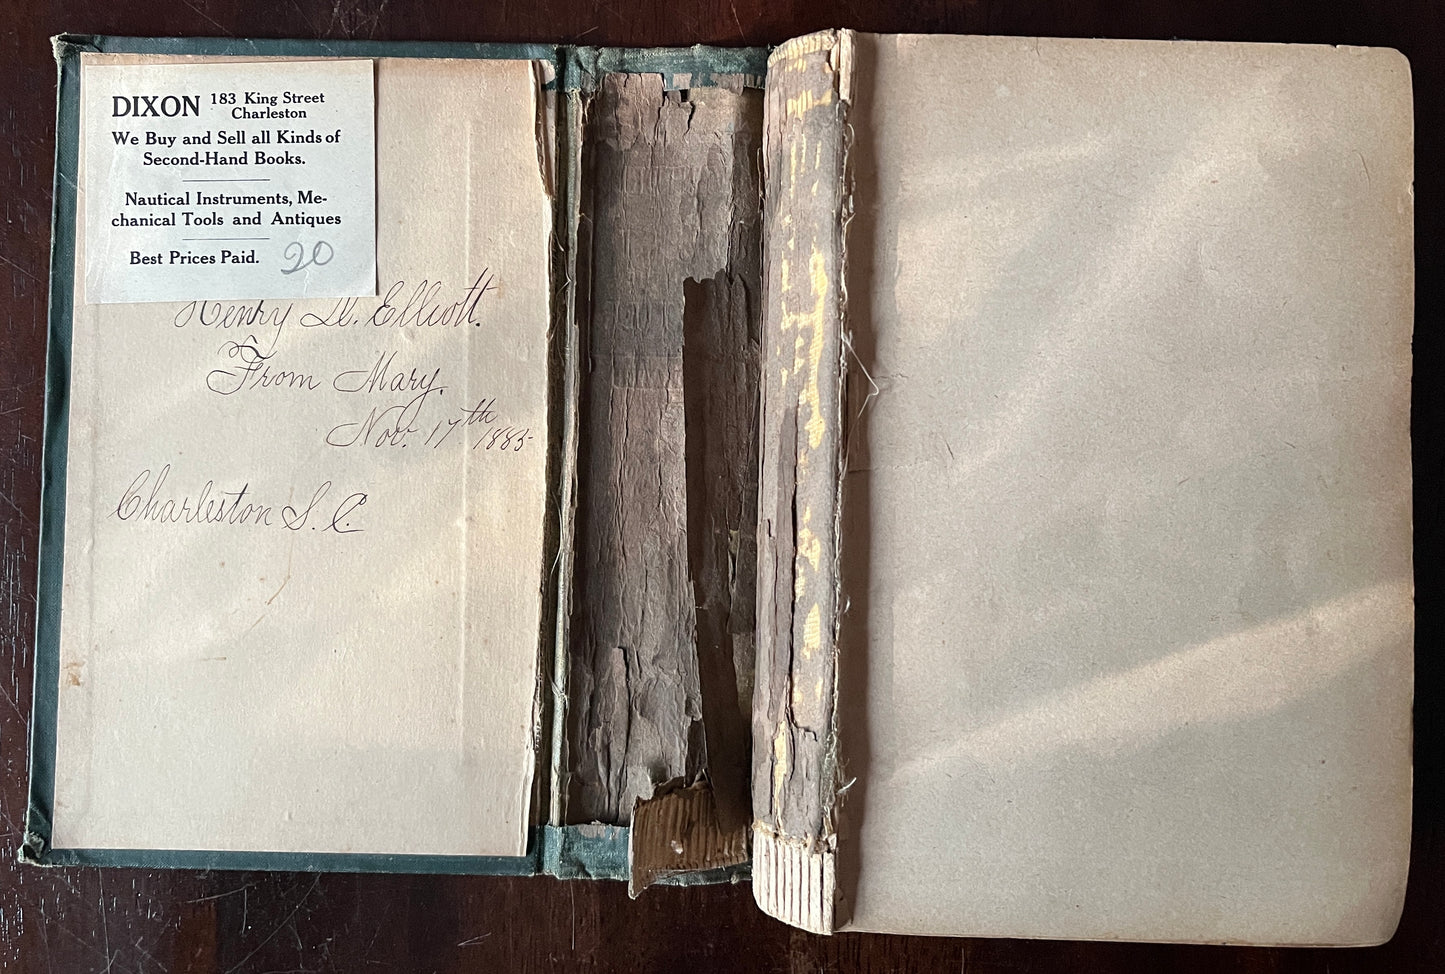 DIXON 183 King Street
Charleston
We Buy and Sell all Kinds of
Second-Hand Books.
Nautical Instruments, Me-
chanical Tools and Antiques
Best Prices Paid. 20
Henry Elliott.
From Mary.
Nov. 17th 1885
Charleston S. C.